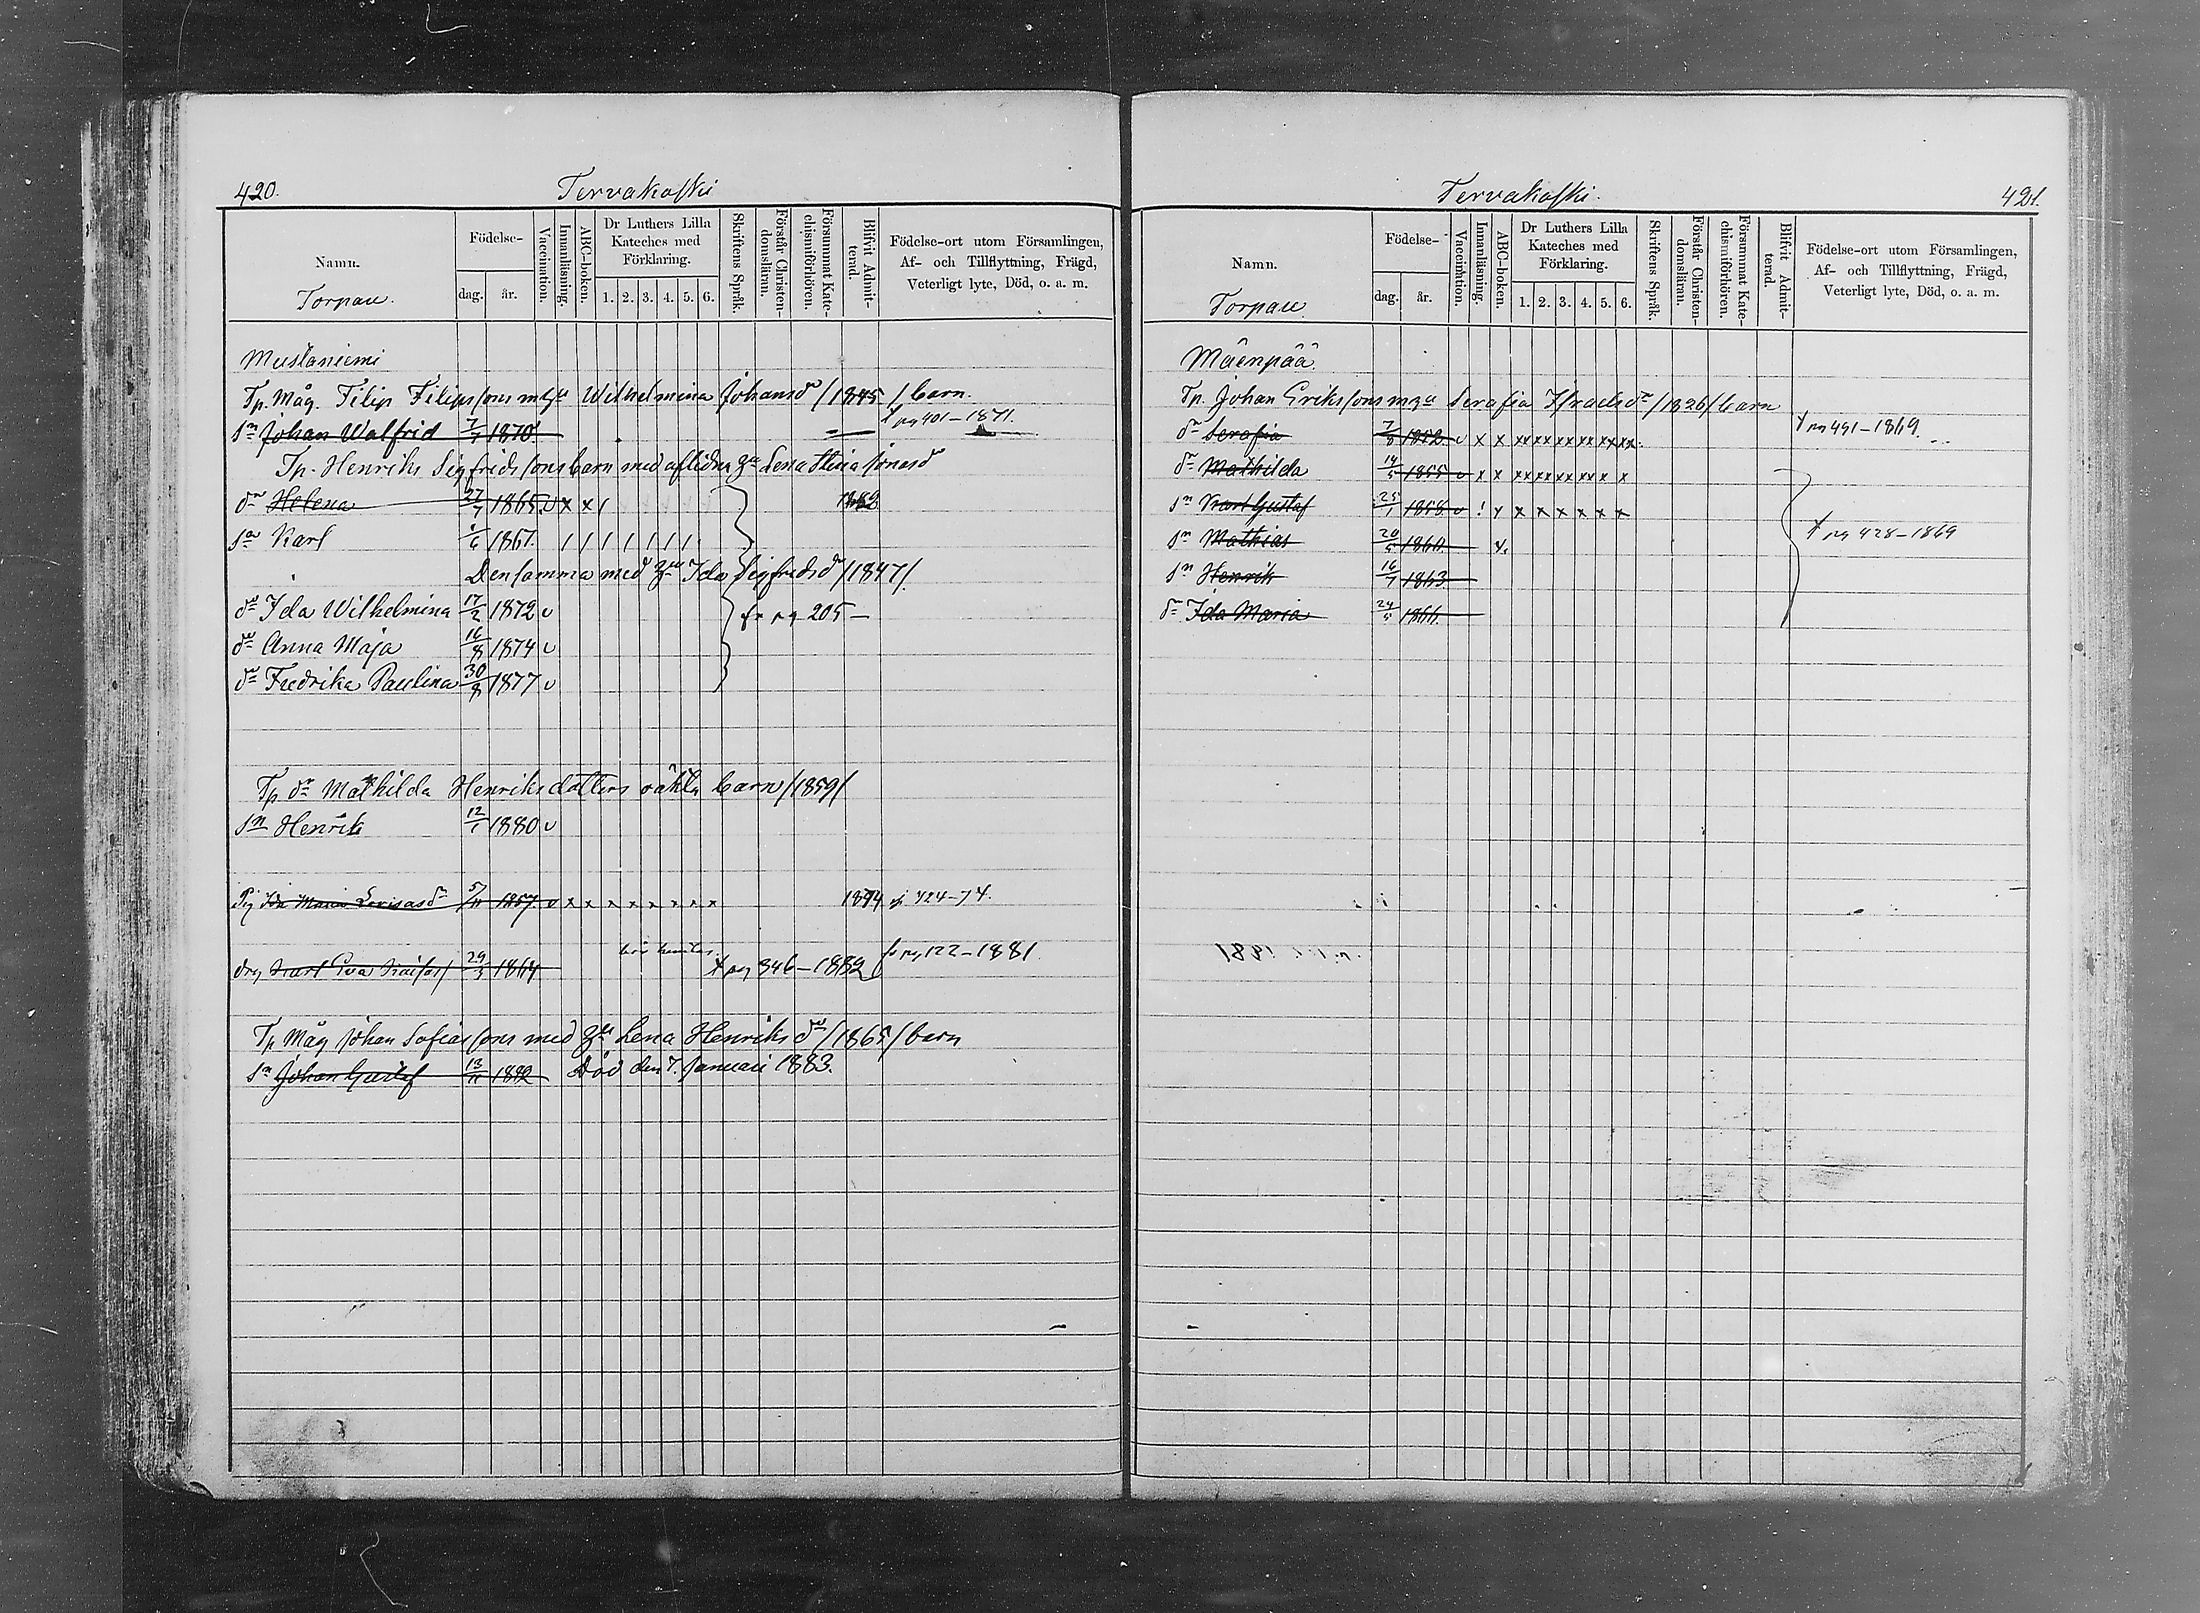 420.
Tervakoski
Namn.
Torpare.
Födelse-
dag.
år.
Vaccination.
Innanläsning.
ABC-boken.
Dr Luthers Lilla
Kateches med
Förklaring.
1. 2. 3. 4. 5. 6.
Skriftens Språk.
Förstår Christen-
domslärnn.
Försummat Kate-
chismiförhören.
Blifvit Admit-
terad.
Födelse-ort utom Församlingen,
Af- och Tillflyttning, Frägd,
Veterligt lyte, Död, o. a. m.
Mustaniemi
Tp. Måg. Filip Filipssons m hu Wilhelmina Johansdr /1845/ barn.
sn Johan Walfrid 7/7 1870. pg 401-1871.
Tp. Henriks Sigfridssons barn med aflidna hu Lena Stina Jonasd
dr Helena 27/7 1865 v x x / 1882
sn Karl 1/6 1867. / / / / / / /
Densamma med hu Ida Sigfridsd /1847/.
dr Ida Wilhelmina 17/2 1872 v fr pg 205 —
dr Anna Maja 16/8 1874 v
dr Fredrika Paulina 30/8 1877 v
Tp dr Mathilda Henriksdotters oäkta barn /1859/
sn Henrik 12/1 1880 v
Pig Maria Lovisasdr 5/11 1857. v x x x x x x x x 1874 424-74.
drg Karl 29/3 1864 pg 346-1882 fr pg 122-1881
Tp Måg Johan Sofiassons med hu Lena Henriksdr /1865/ barn
sn Johan Gustaf 13/11 1882 Död den 7. Januari 1883.
Tervakoski.
421.
Namn.
Torpare.
Födelse-
dag.
år.
Vaccination.
Innanläsning.
ABC-boken.
Dr Luthers Lilla
Kateches med
Förklaring.
1. 2. 3. 4. 5. 6.
Skriftens Språk.
Förstår Christen-
domsläran.
Försummat Kate-
chismiförhören.
Blifvit Admit-
terad.
Födelse-ort utom Församlingen,
Af- och Tillflyttning, Frägd,
Veterligt lyte, Död, o. a. m.
Mäenpää
Tp. Johan Erikssons m hu Serafia Israelsdr /1826/ barn
dr Serafia 7/8 1852. v x x xx xx xx xx xx xx. pg 491-1869.
dr Mathilda 14/5 1855 v x x xx xx xx xx x x
sn Karl Gustaf 25/1 1858. v ! x x x x x x x
sn Mathias 20/5 1860. x. pg 428-1869
sn Henrik 16/7 1863
dr Ida Maria 24/5 1866.